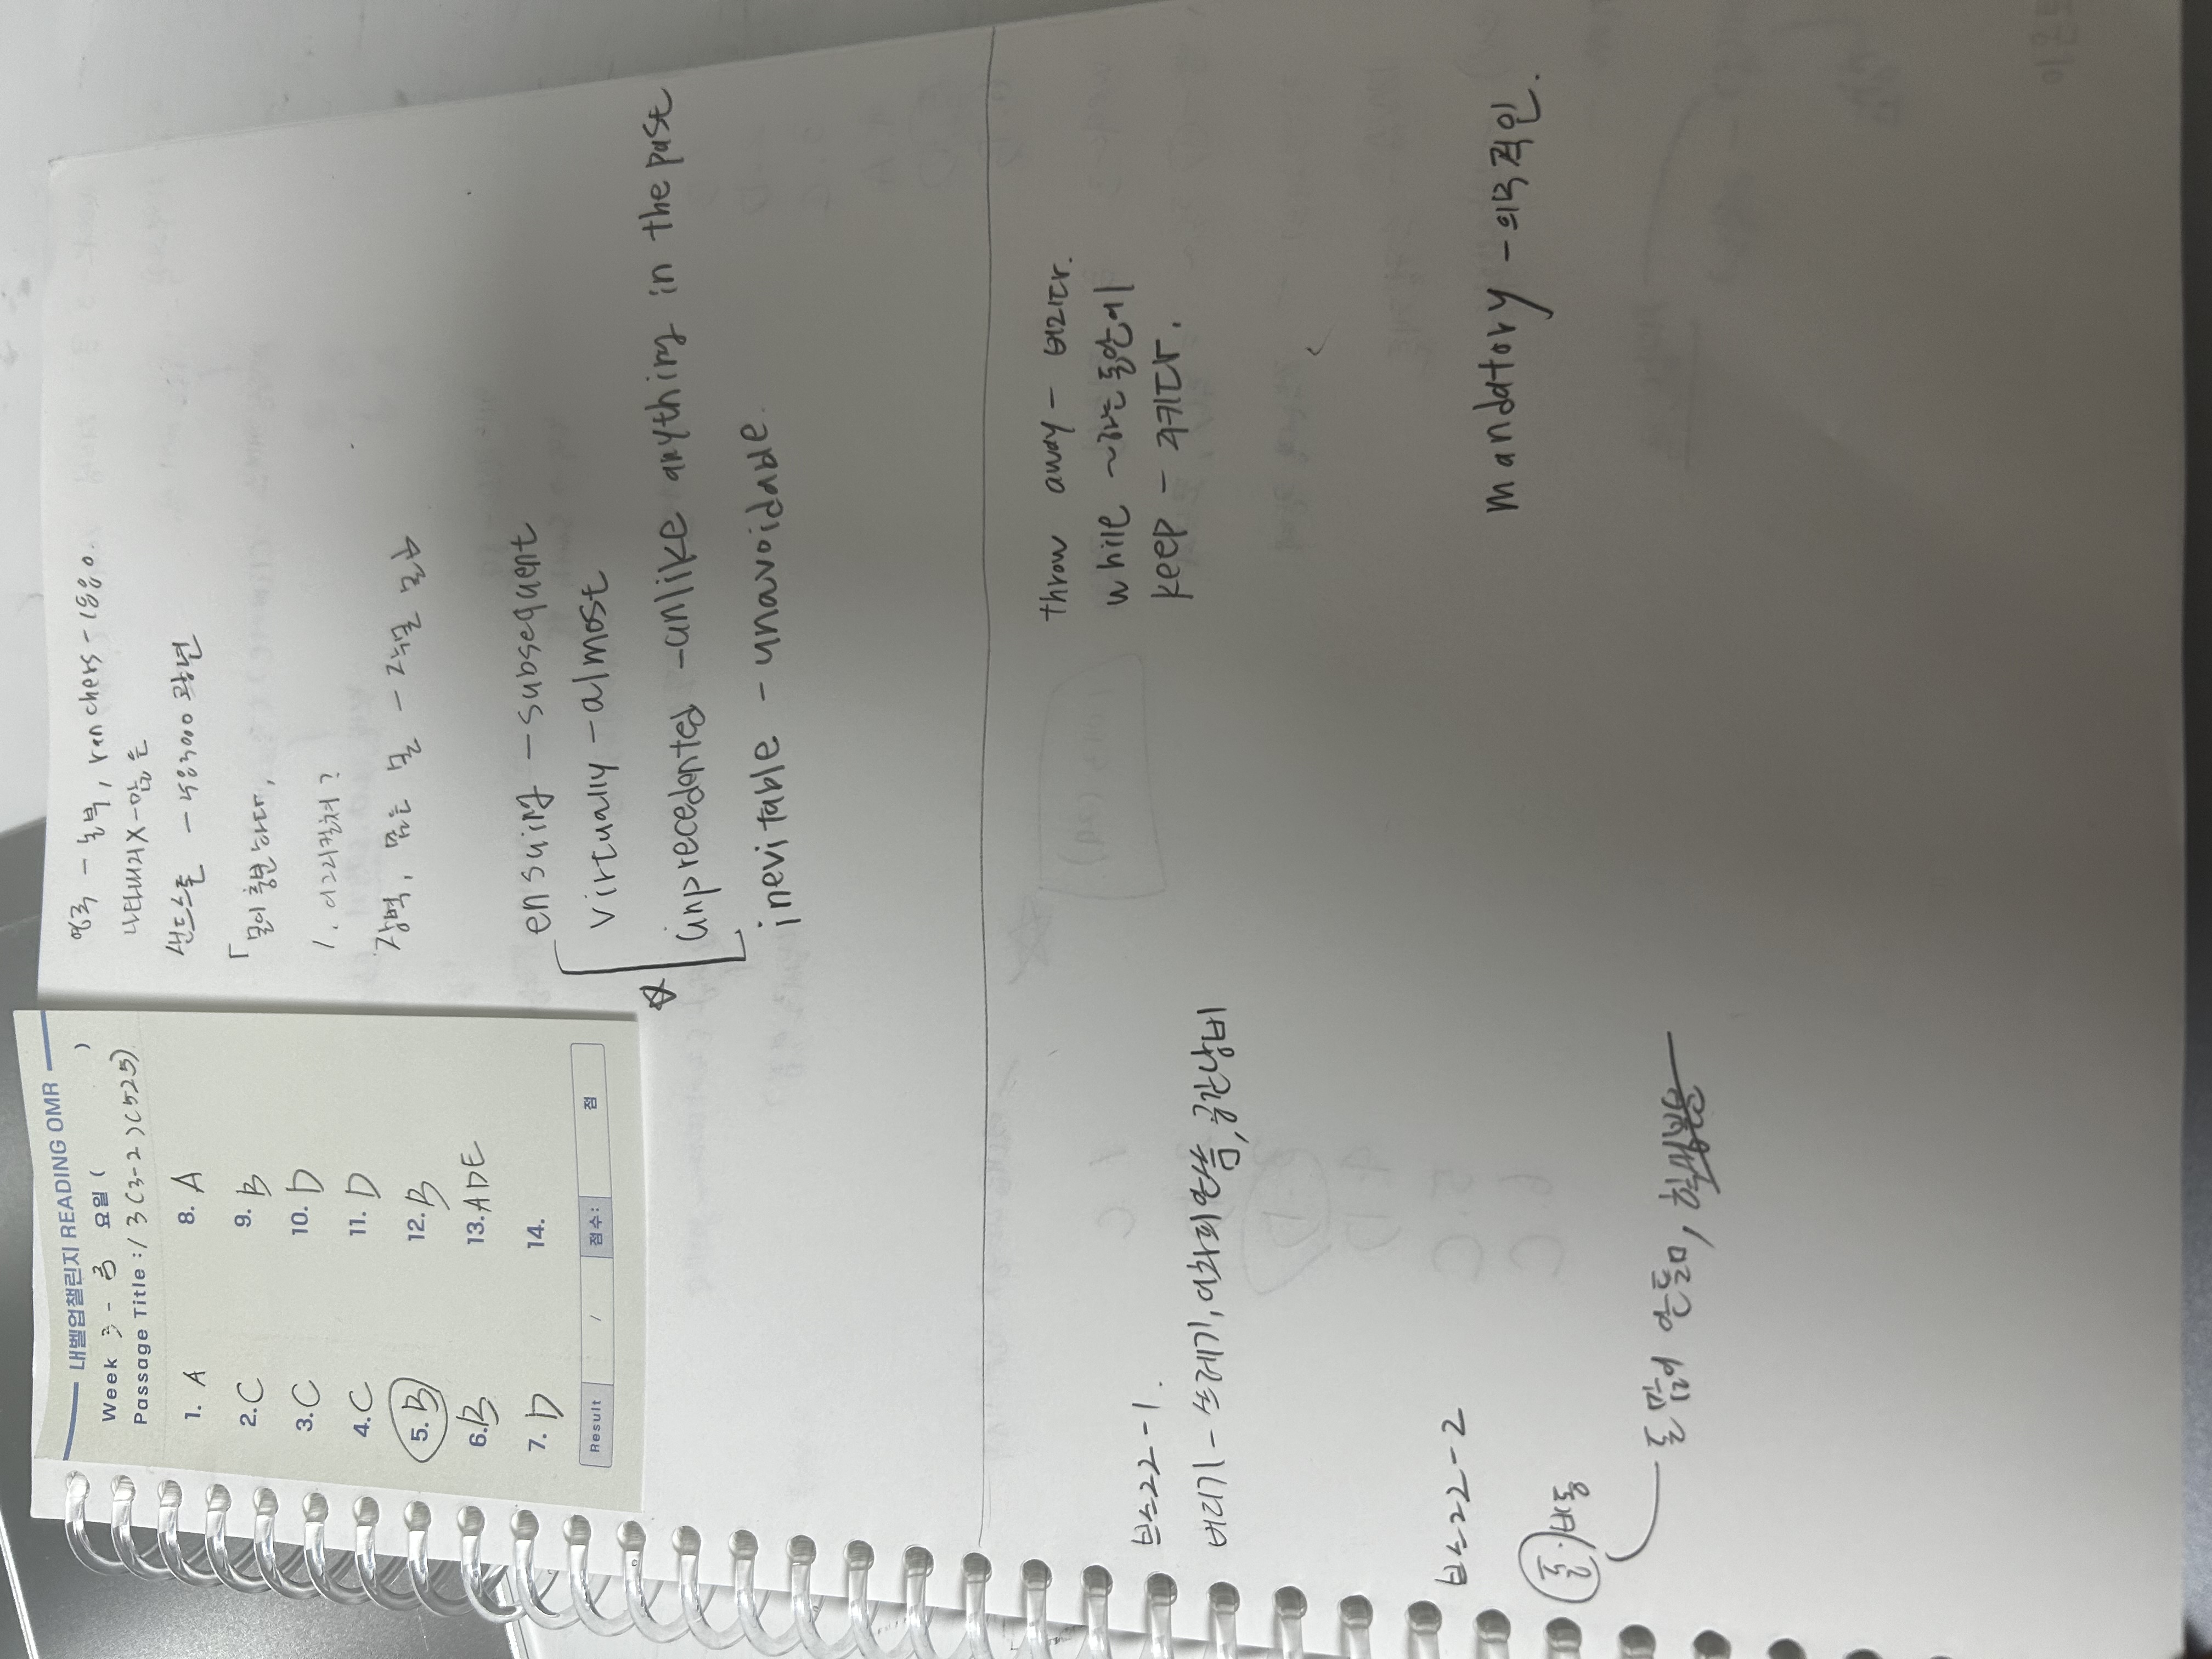 내벨업챌린지 READING OMR
Week 3 - 3 요일 ( )
Passage Title : / 3 (3-2) (525)
1. A
2. C
3. C
4. C
5. B
6. B
7. D
8. A
9. B
10. D
11. D
12. B
13. ADE
14.
Result / 점수: 점
영국 - 농부, ranchers - 1880.
나타내기X - 많은
샌드스톤 - 광년
물이 충분하다,
1. 어그리컬쳐?
장벽, 많은 물 -
ensuing - subsequent
virtually - almost
unprecedented - unlike anything in the past
inevitable - unavoidable.
브스22-1.
버리기 - 쓰레기, 여과되 안씀, 공간낭비
throw away - 버리다.
while ~하는 동안에
keep - 지키다.
브스22-2
돈/비용
돈 많이 안 듬,
mandatory - 의무적인.